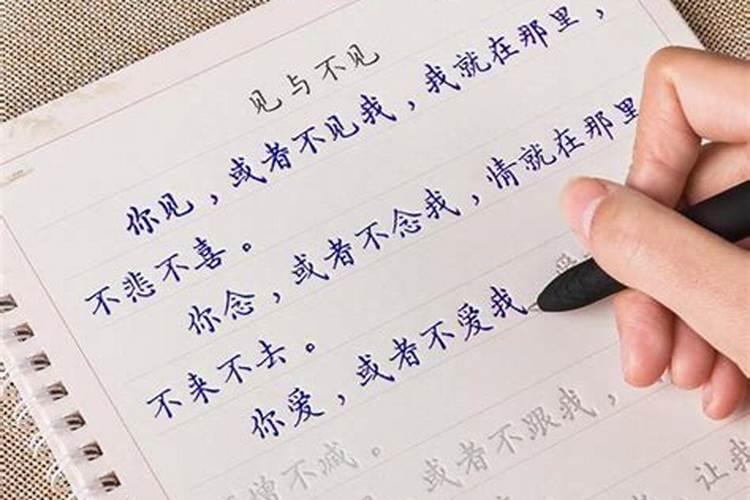 见与不见
你见，或者不见我，我就在那里，
不悲不喜。
你念，或者不念我，情就在那里
不来不去。
你爱，或者不爱我 爱
不增不减。
或者不跟我，
让我